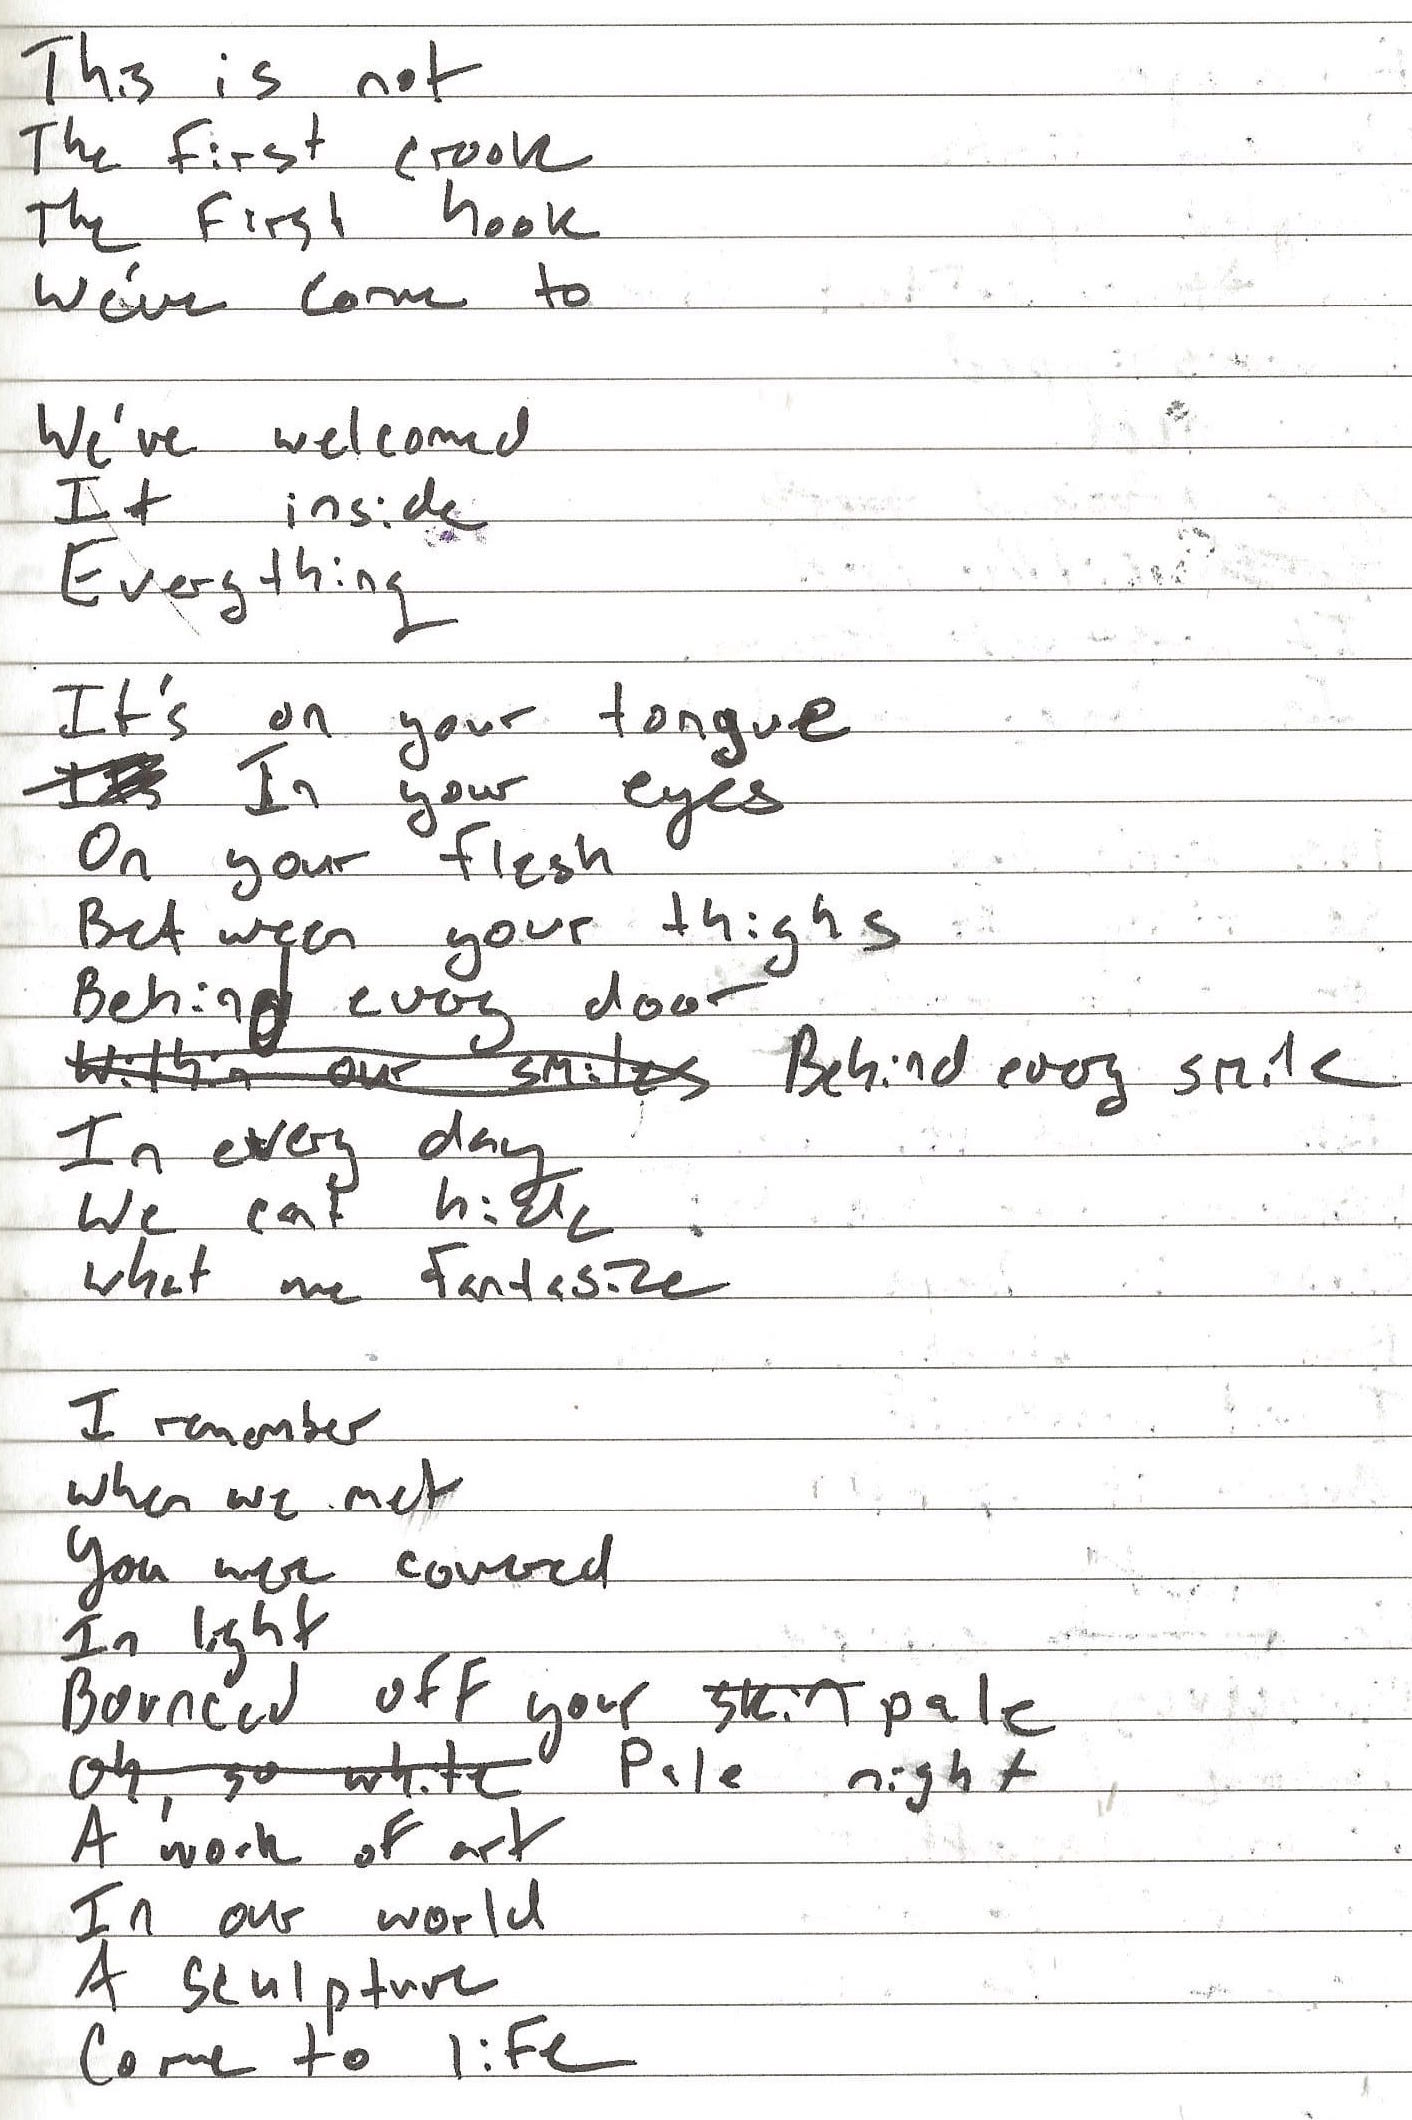 This is not
The first crook
The first hook
We've come to
We've welcomed
It inside
Everything
It's on your tongue
In your eyes
On your flesh
Between your thighs
Behind every door
Within our smiles Behind every smile
In every day
We eat hide
What we fantasize
I remember
when we met
You were covered
In light
Bounced off your skin pale
Oh, so white Pale night
A work of art
In our world
A sculpture
Come to life